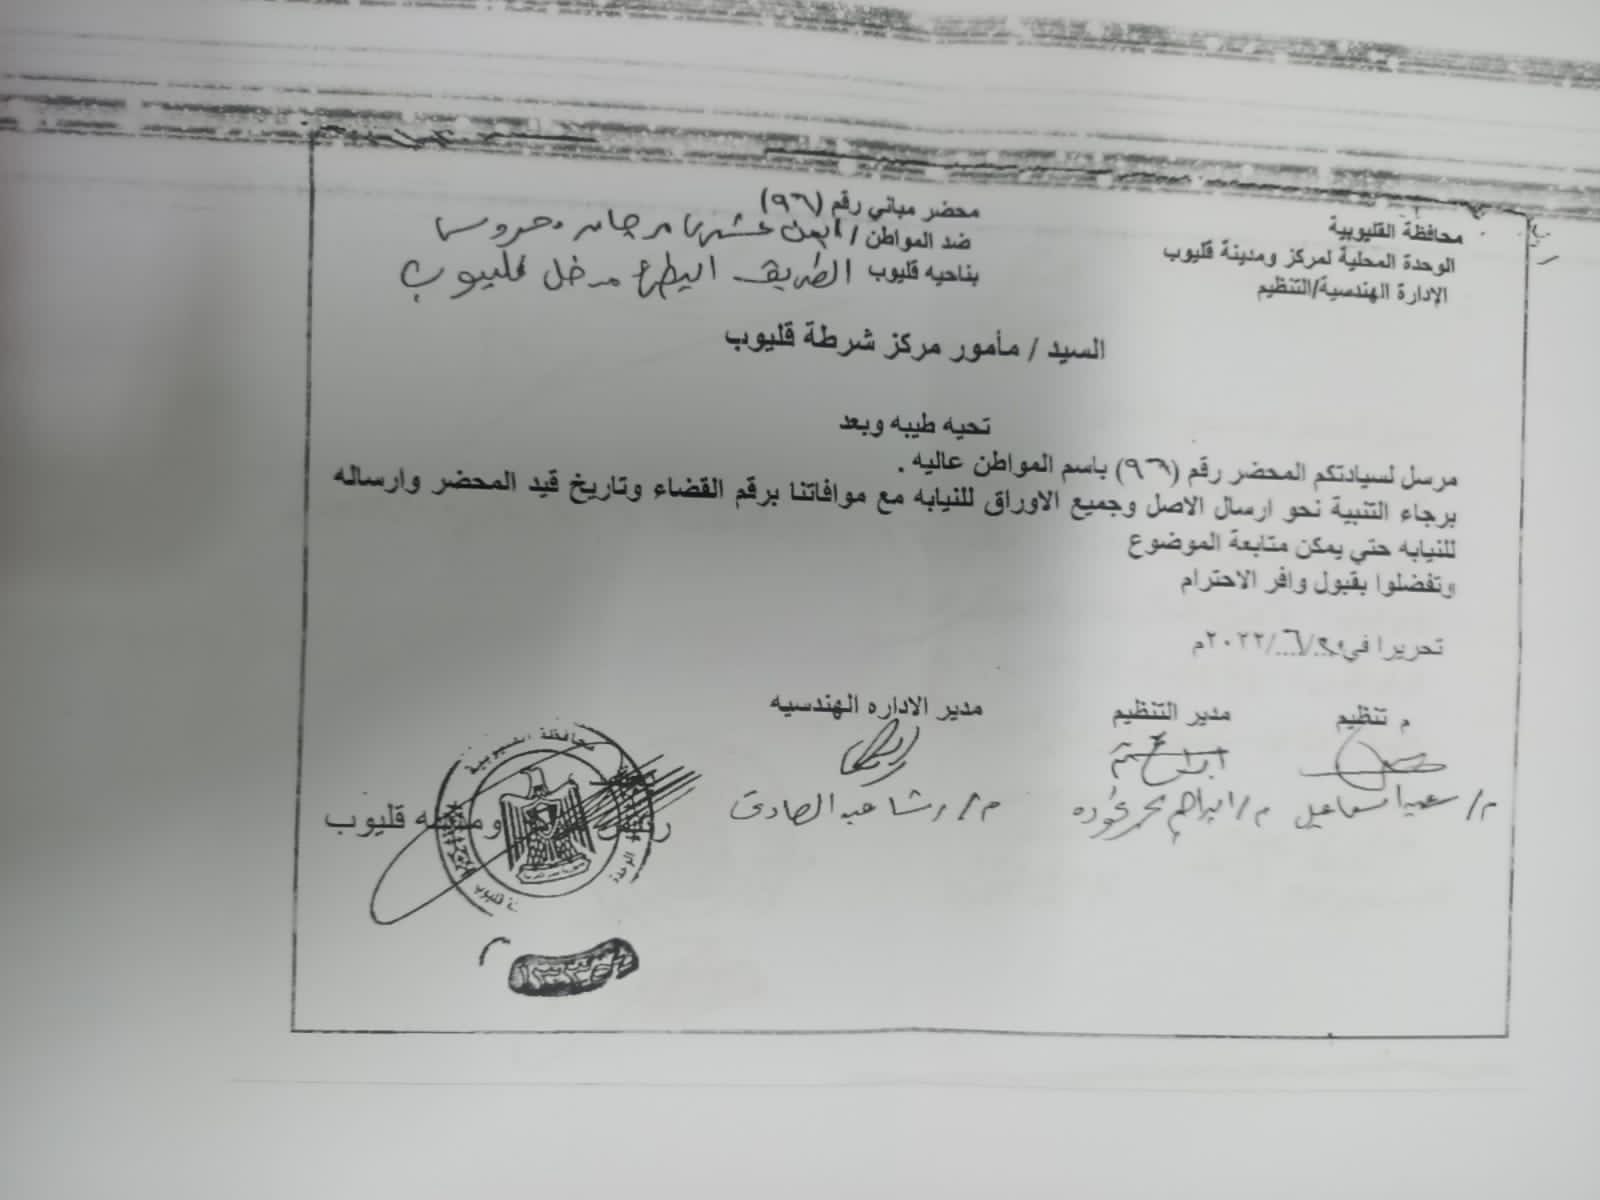 محافظة القليوبية
الوحدة المحلية لمركز ومدينة قليوب
الإدارة الهندسية/التنظيم
محضر مباني رقم (٩٦)
ضد المواطن /
بناحيه قليوب الطريق مدخل قليوب
السيد / مأمور مركز شرطة قليوب
تحيه طيبه وبعد
مرسل لسيادتكم المحضر رقم (٩٦) باسم المواطن عاليه .
برجاء التنبية نحو ارسال الاصل وجميع الاوراق للنيابه مع موافاتنا برقم القضاء وتاريخ قيد المحضر وارساله
للنيابه حتي يمكن متابعة الموضوع
وتفضلوا بقبول وافر الاحترام
تحريرا في /٦/٢٠٢٢م
م تنظيم
مدير التنظيم
مدير الاداره الهندسيه
م/ اسماعيل
م/ ابراهيم محمد
م/ رشا عبد الصادق
قليوب
محافظة القليوبية